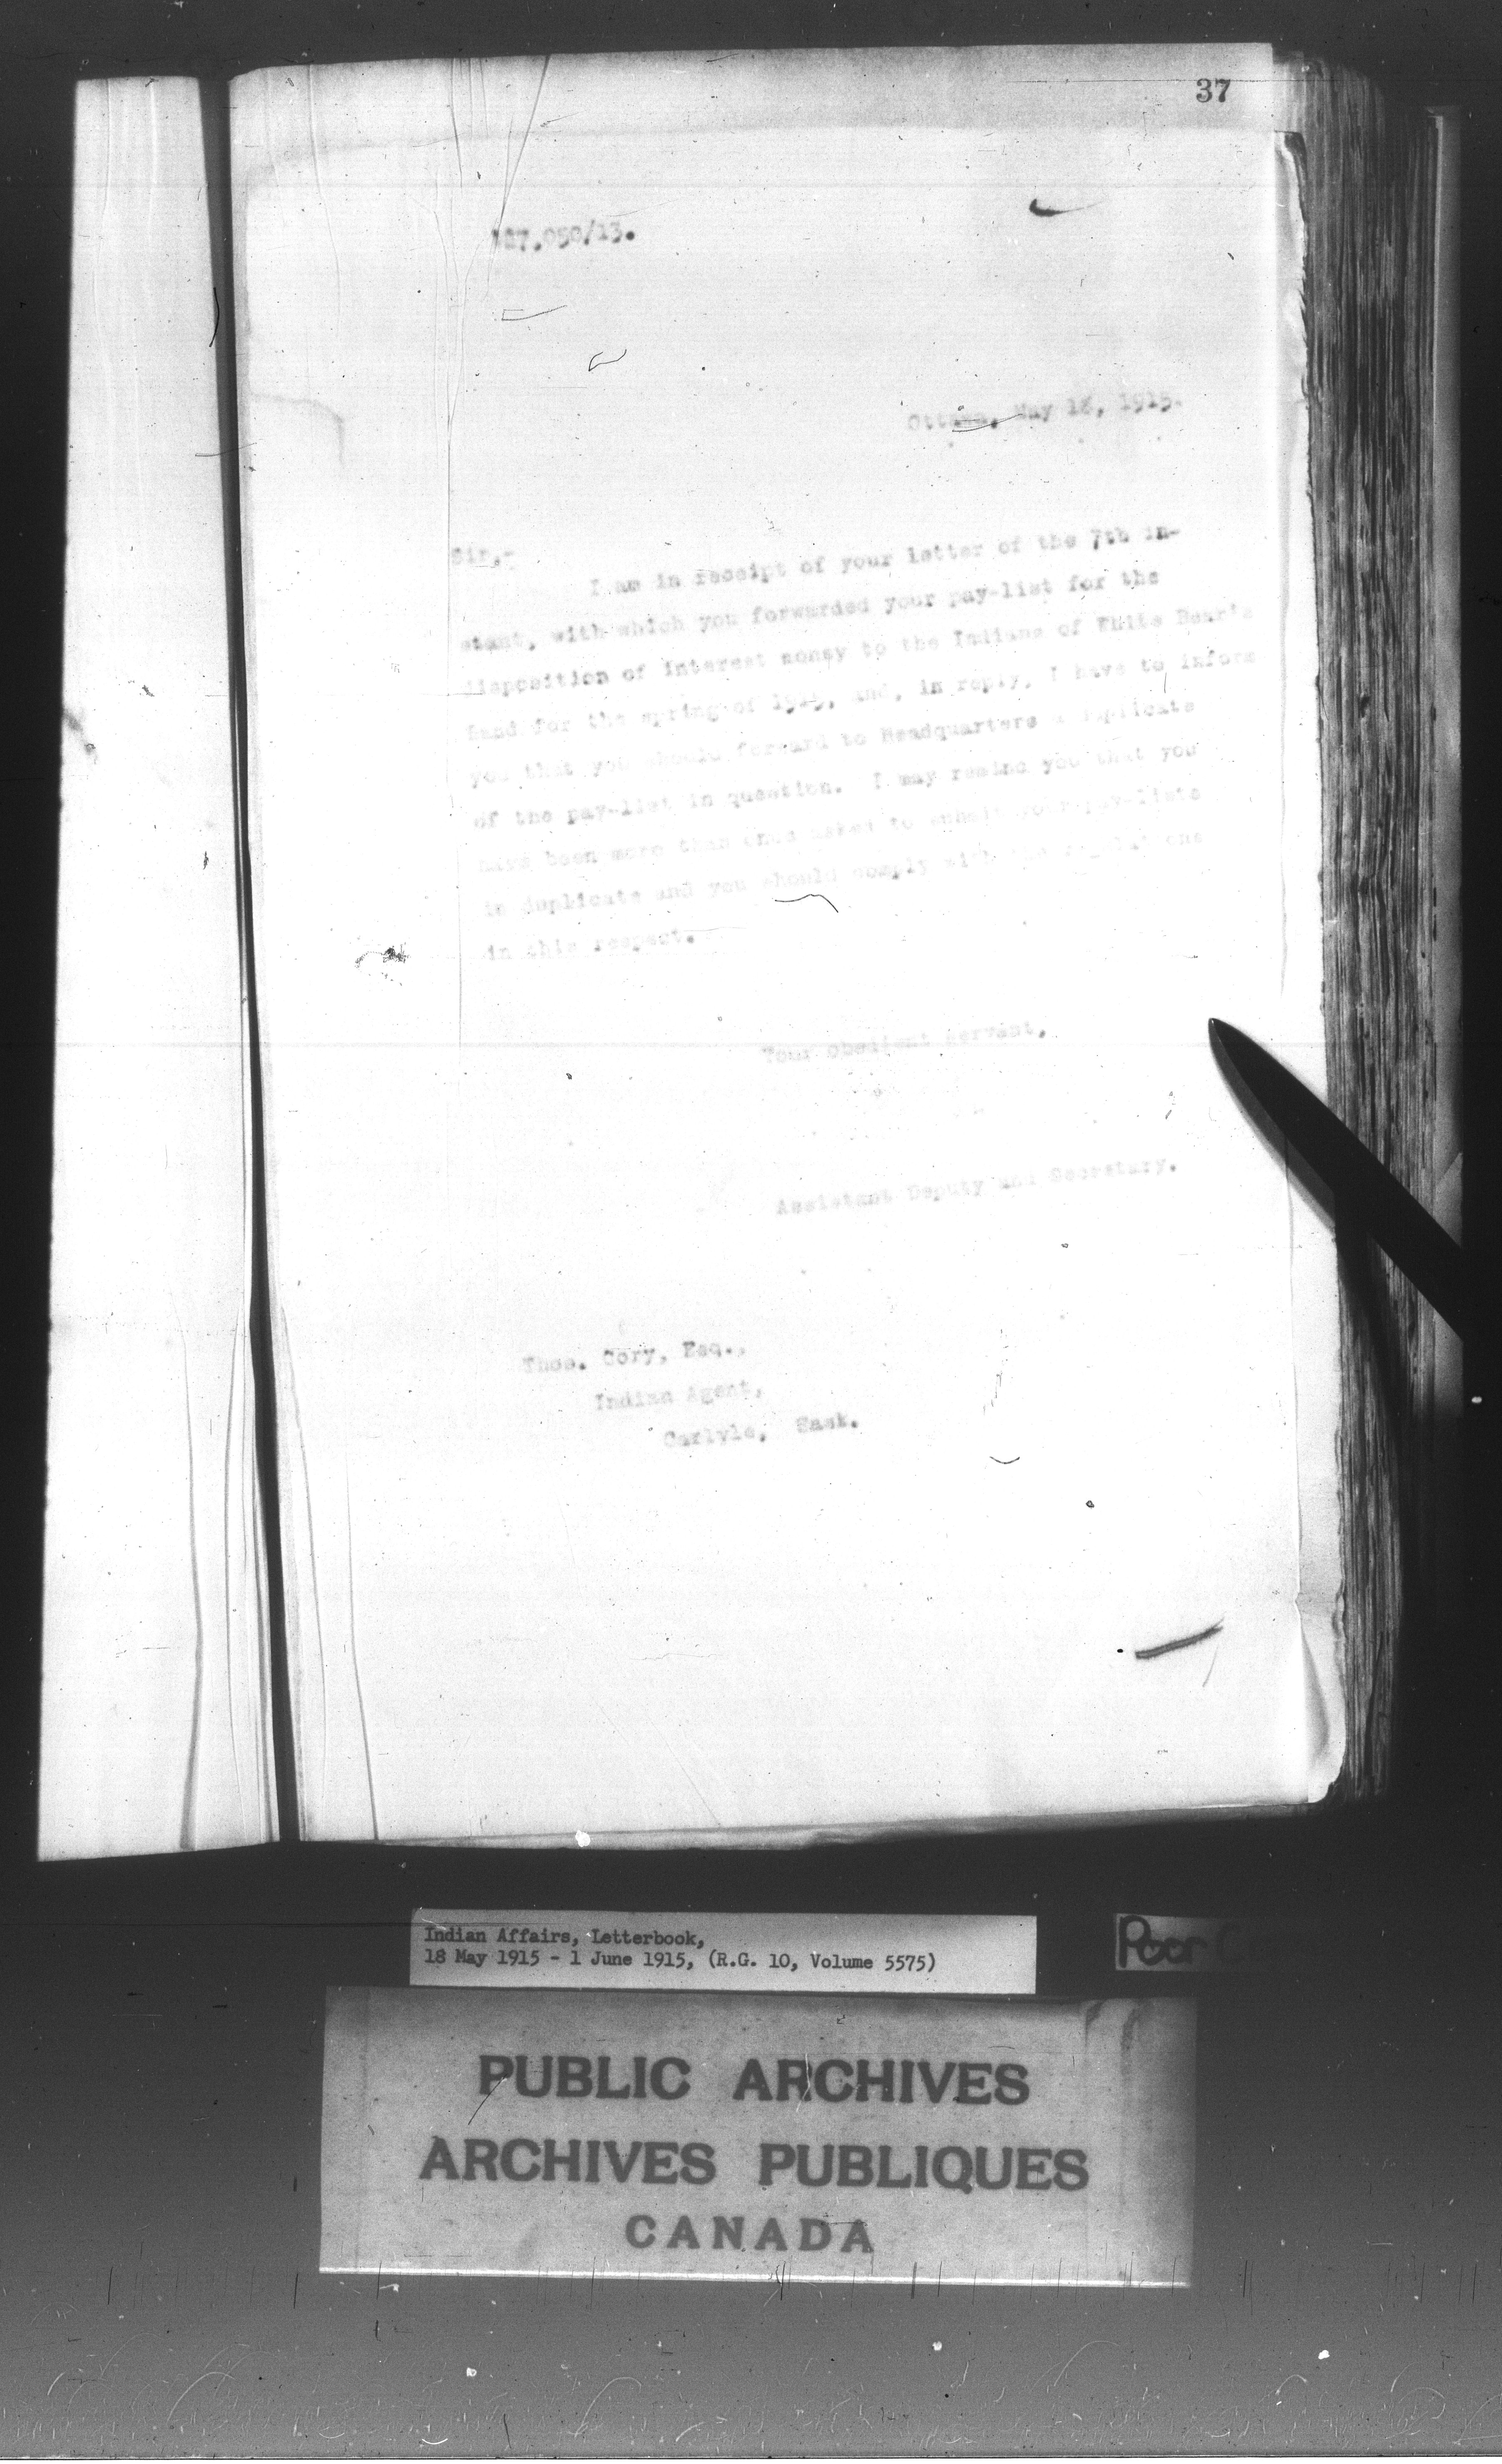 37
127,050/13.
Ottawa, May 18, 1915.
Sir,-
I am in receipt of your letter of the 7th in-
stant, with which you forwarded your pay-list for the
disposition of interest money to the Indians of White Bear's
Band for the spring of 1915, and, in reply, I have to inform
you that you should forward to Headquarters a duplicate
of the pay-list in question. I may remind you that you
have been more than once asked to submit your pay-lists
in duplicate and you should comply with the regulations
in this respect.
Your obedient servant,
Assistant Deputy and Secretary.
Thos. Cory, Esq.,
Indian Agent,
Carlyle, Sask.
Indian Affairs, Letterbook,
18 May 1915 - 1 June 1915, (R.G. 10, Volume 5575)
Poor
PUBLIC ARCHIVES
ARCHIVES PUBLIQUES
CANADA